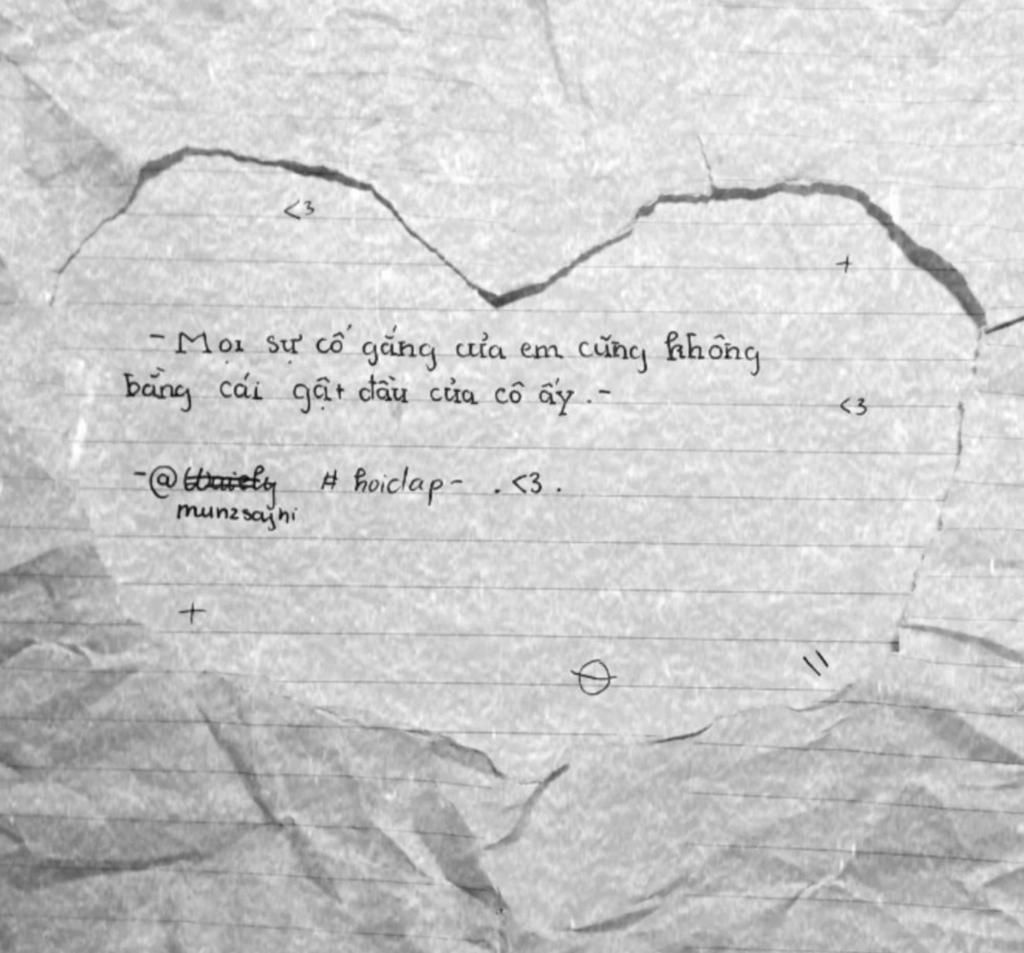 <3
+
- Mọi sự cố gắng của em cũng không
bằng cái gật đầu của cô ấy. -
<3
- @ # hoiclap - . <3 .
munzsajni
+